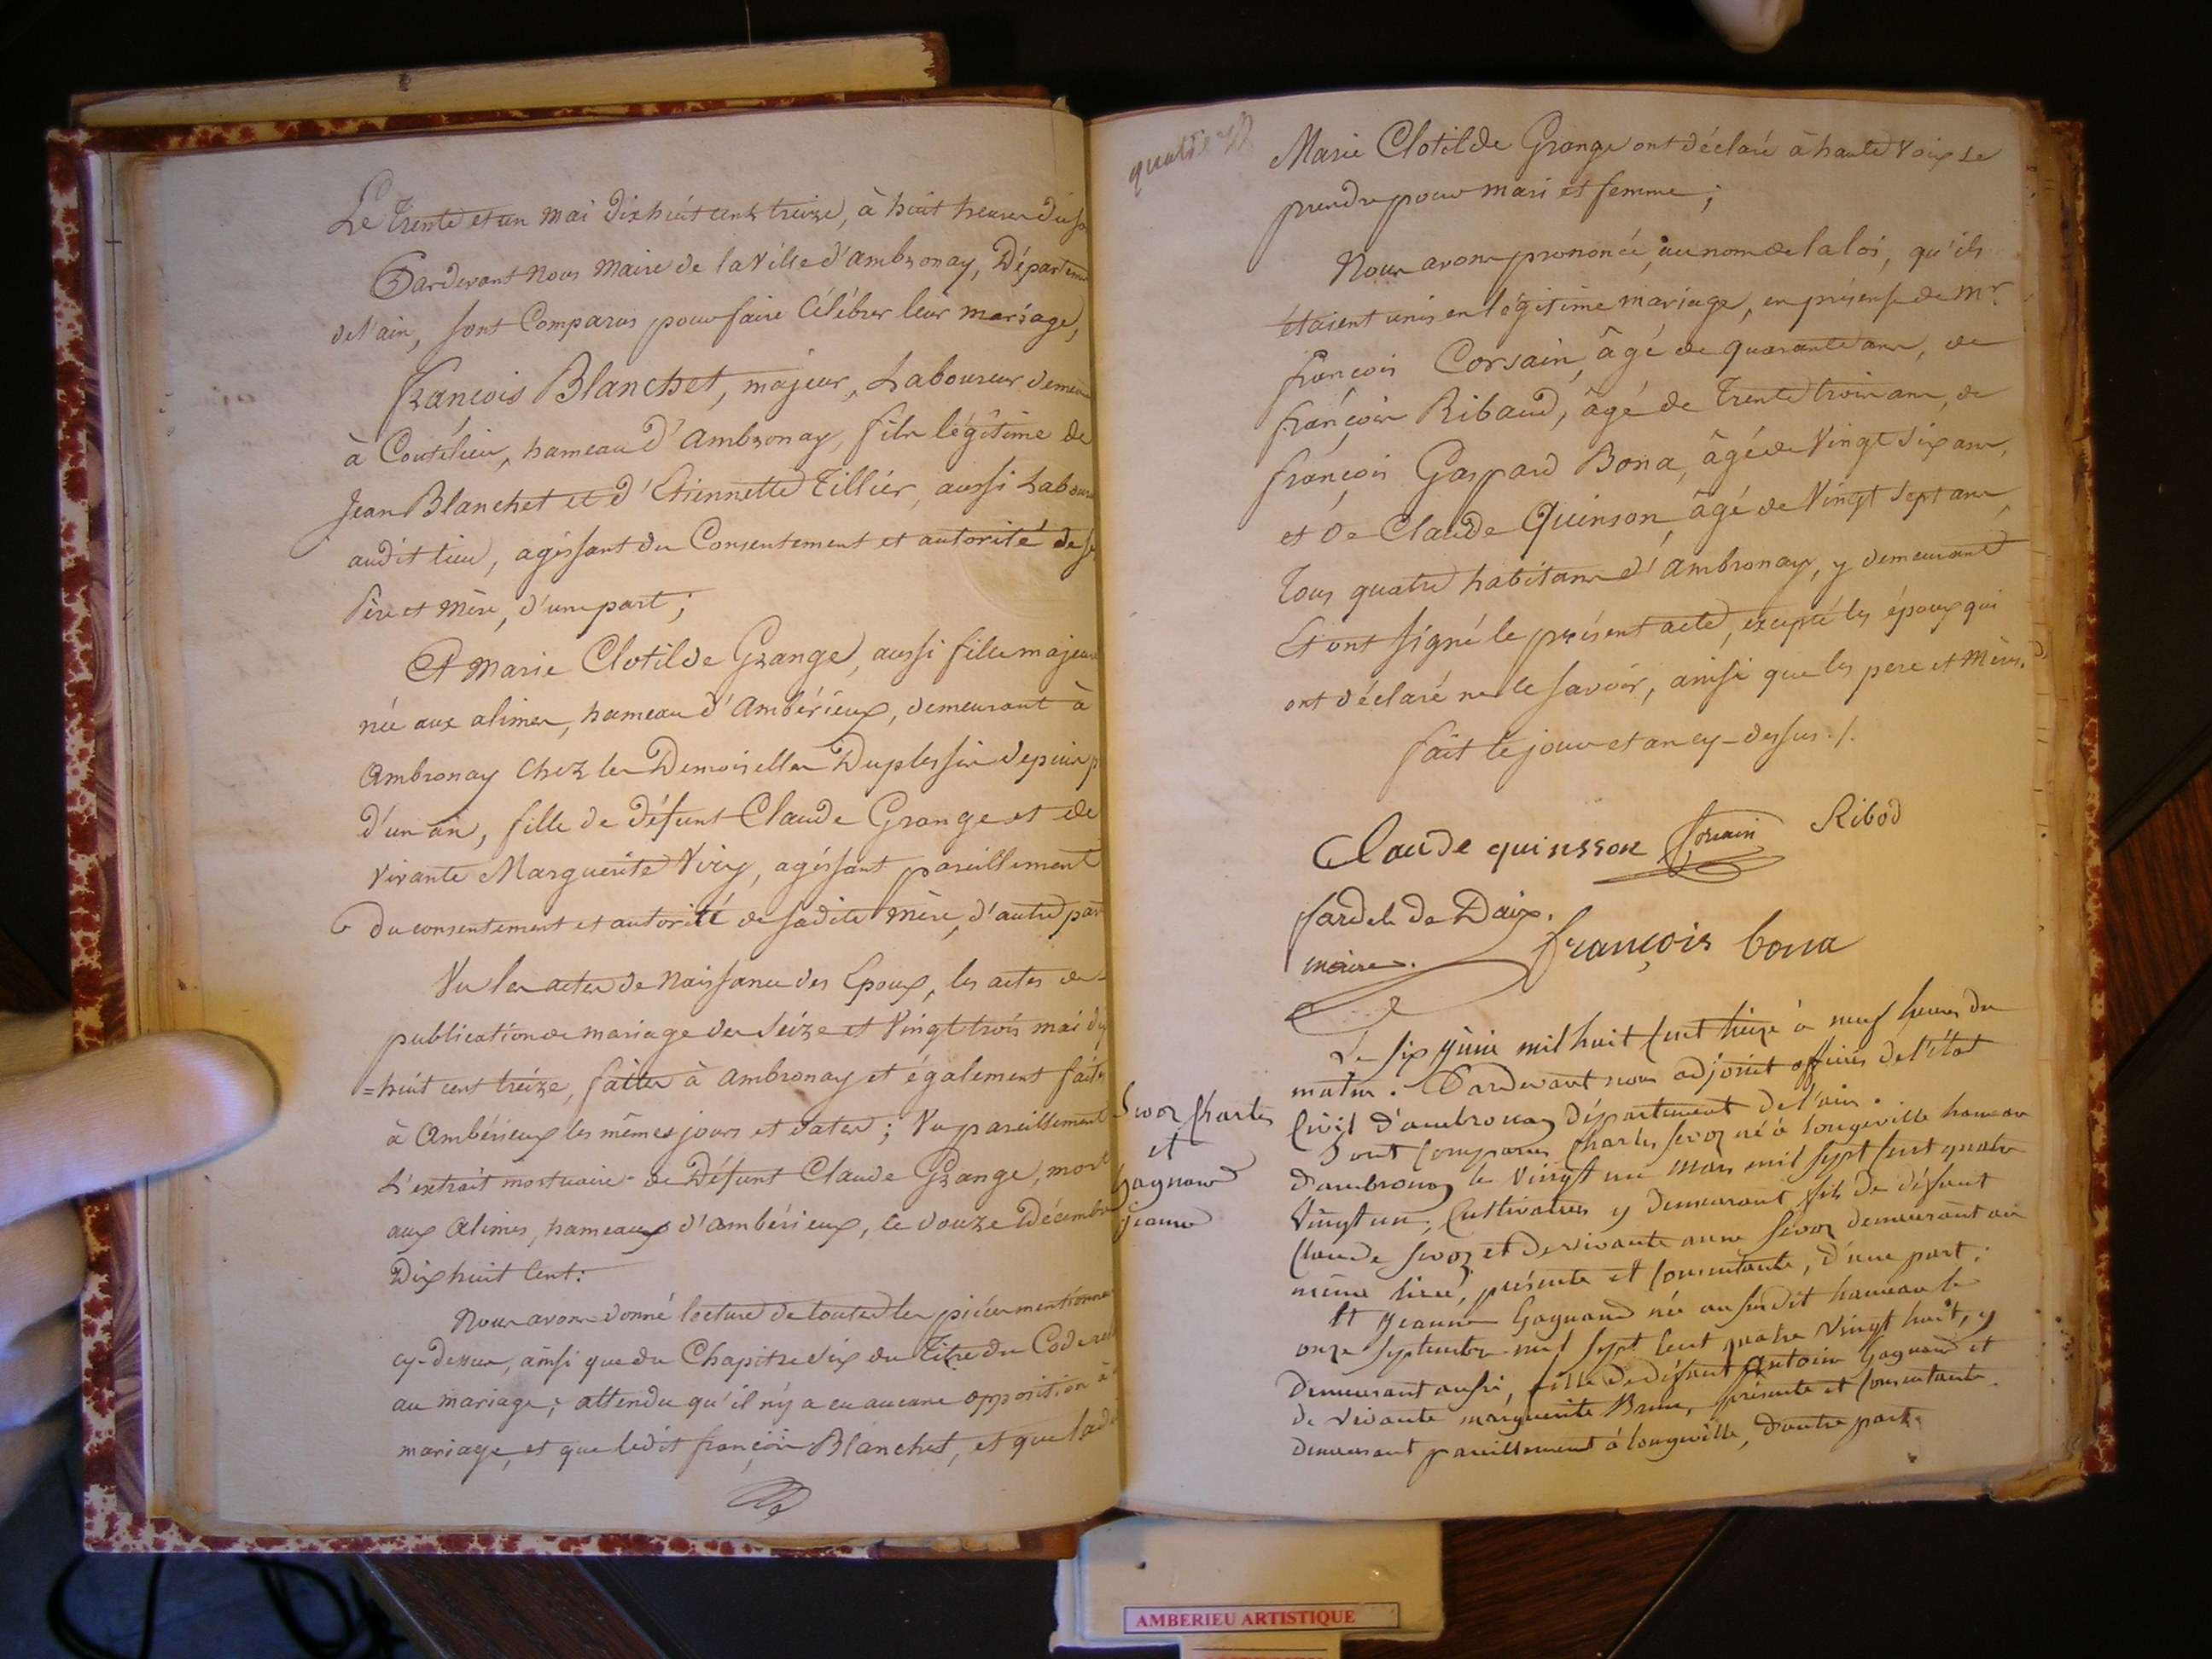 Le Trente et un mai Dixhuit cent treize, à huit heures du so
Pardevant Nous Maire de la Ville d'ambronay, Départem
de l'ain, sont Comparus pour faire Célébrer leur mariage,
françois Blanchet, majeur, Laboureur demeu
à Coutelieu, hameau d'ambronay, fils légitime de
Jean Blanchet et d'Etiennette Tillier, aussi Labour
audit lieu, agissant du Consentement et autorité de se
Père et Mère, d'une part;
Et Marie Clotilde Grange, aussi fille majeur
née aux alimes, hameau d'Ambérieux, demeurant à
Ambronay Chez les Demoiselles Duplessis depuis p
d'un an, fille de défunt Claude Grange et de
vivante Marguerite Viry, agissant pareillement
du consentement et autorité de sadite Mère, d'autre part
Vu les actes de Naissance des Epoux, les actes de
publication de mariage des Seize et Vingt trois mai dix
=huit cent treize, faites à ambronay et également faits
à Ambérieux les mêmes jours et dates; Vu pareillement
L'extrait mortuaire de Défunt Claude Grange, mort
aux Alimes, hameaux d'ambérieux, le douze Décembre
Dix huit Cent:
Nous avons donné lecture de toutes les pièces mentionnée
cy-dessus, ainsi que du Chapitre six du Titre du Code
au mariage; attendu qu'il n'y a eu aucune opposition à
mariage, et que ledit françois Blanchet, et que lad
quatre
Marie Clotilde Grange ont déclaré à haute voix se
prendre pour mari et femme;
Nous avons prononcé, au nom de la loi, qu'ils
étaient unis en légitime mariage, en présense de Mr.
françois Corsain, âgé de quarante ans, de
françois Ribaud, âgé de Trente trois ans, de
françois Gaspard Bona, âgé de Vingt six ans,
et de Claude Quinson, âgé de Vingt sept ans,
Tous quatre habitans d'Ambronay, y demeurant
Et ont signé le présent acte, excepté les époux qui
ont déclaré ne le savoir, ainsi que les pere et mères.
fait le jour et an cy-dessus./.
Claude quinsson Ribod
de Daix.
maire.
françois bona
Le six juin mil huit Cent treize à neuf heures du
matin. Pardevant nous adjoint officier de l'état
Civil d'ambronay département de l'ain.
Sont Comparus Charles Sivoz né à longeville hameau
d'ambronay le Vingt un mars mil sept Cent quatre
Vingt un, Cultivateur y demeurant fils de défunt
Claude Sivoz et de vivante anne Sivoz demeurant au
même lieu, présente et Consentante, d'une part;
Et Jeanne Gagnand née au susdit hameau le
onze Septembre mil sept Cent quatre Vingt huit, y
demeurant aussi, fille de défunt Antoine Gagnand et
de vivante marguerite Brun, présente et Consentante.
demeurant pareillement à longeville, d'autre part.
Sivoz Charles
et
Gagnand
Jeanne
AMBERIEU ARTISTIQUE